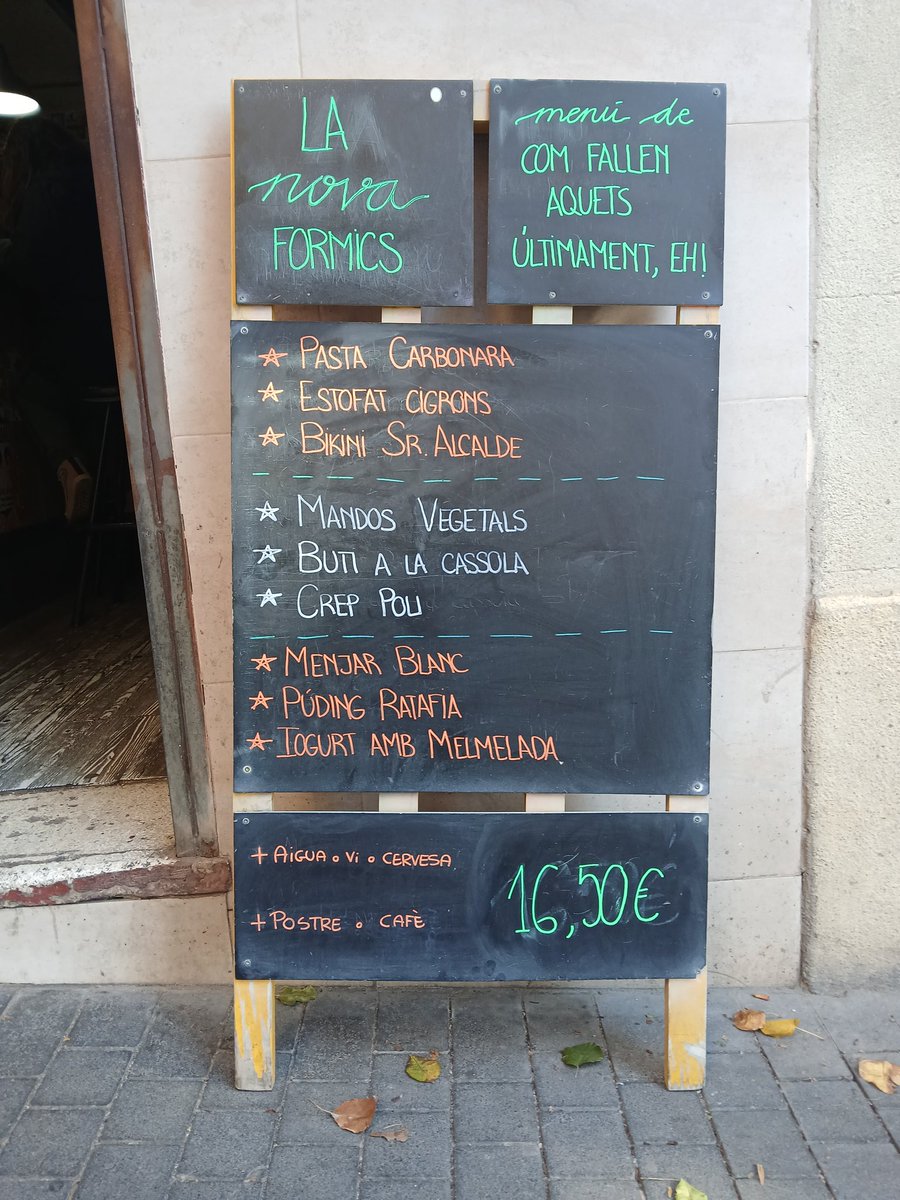 LA
nova
FORMICS
menú de
COM FALLEN
AQUETS
ÚLTIMAMENT, EH!
PASTA CARBONARA
ESTOFAT CIGRONS
BIKINI SR. ALCALDE
MANDOS VEGETALS
BUTI A LA CASSOLA
CREP POLL
MENJAR BLANC
PÚDING RATAFIA
IOGURT AMB MELMELADA
+ AIGUA o VI o CERVESA
+ POSTRE o CAFÈ
16,50€